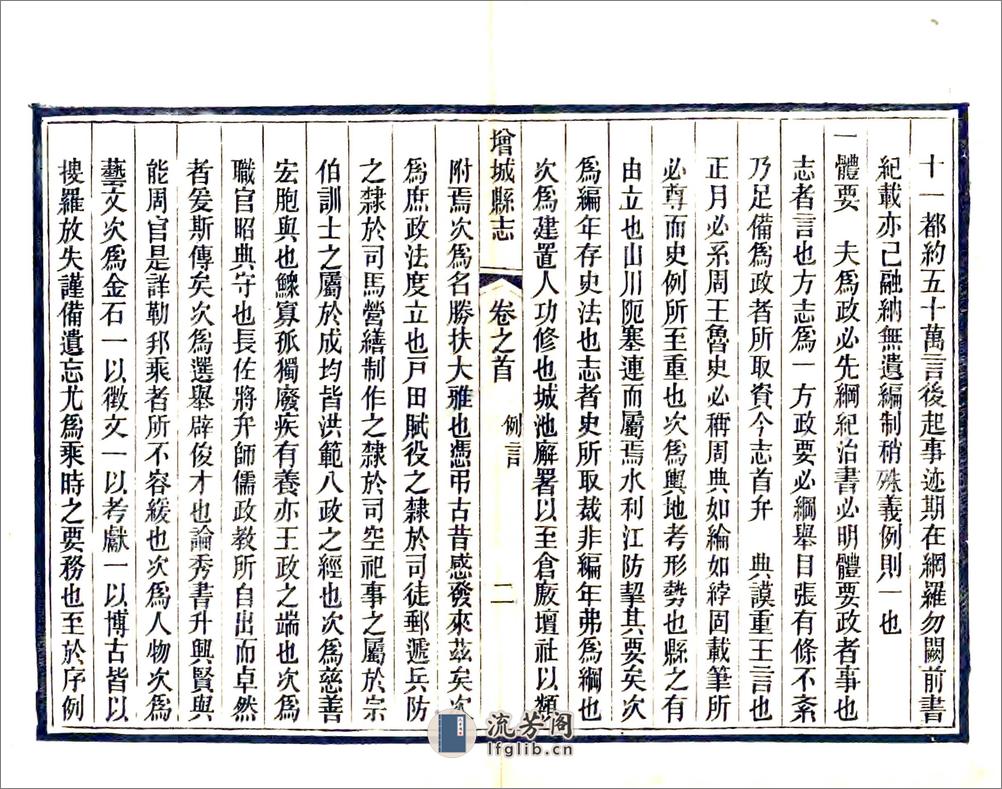 十一都約五十萬言後起事迹期在網羅勿闕前書
紀載亦已融納無遺編制稍殊義例則一也
一體要　夫爲政必先綱紀治書必明體要政者事也
志者言也方志爲一方政要必綱舉目張有條不紊
乃足備爲政者所取資今志首弁　典謨重王言也
正月必系周王魯史必稱周典如綸如綍固載筆所
必尊而史例所至重也次爲輿地考形勢也縣之有
由立也山川阨塞連而屬焉水利江防挈其要矣次
爲編年存史法也志者史所取裁非編年弗爲綱也
次爲建置人功修也城池廨署以至倉廒壇社以類
增城縣志
卷之首
例言
二
附焉次爲名勝扶大雅也憑弔古昔感發來茲矣次
爲庶政法度立也戸田賦役之隸於司徒郵遞兵防
之隸於司馬營繕制作之隸於司空祀事之屬於宗
伯訓士之屬於成均皆洪範八政之經也次爲慈善
宏胞與也鰥寡孤獨廢疾有養亦王政之端也次爲
職官昭典守也長佐將弁師儒政教所自出而卓然
者爰斯傳矣次爲選舉辟俊才也論秀書升興賢與
能周官是詳勒邦乘者所不容緩也次爲人物次爲
藝文次爲金石一以徵文一以考獻一以博古皆以
摟羅放失謹備遺忘尤爲乘時之要務也至於序例
流芳阁
lfglib.cn